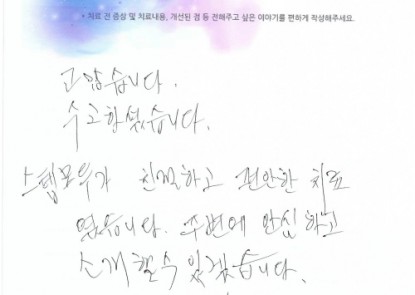 * 치료 전 증상 및 치료내용, 개선된 점 등 전해주고 싶은 이야기를 편하게 작성해주세요.
고맙습니다.
수고하셨습니다.
스텝모두가 친절하고 편안한 치료
였습니다. 주변에 안심하고
소개할수 있겠습니다.